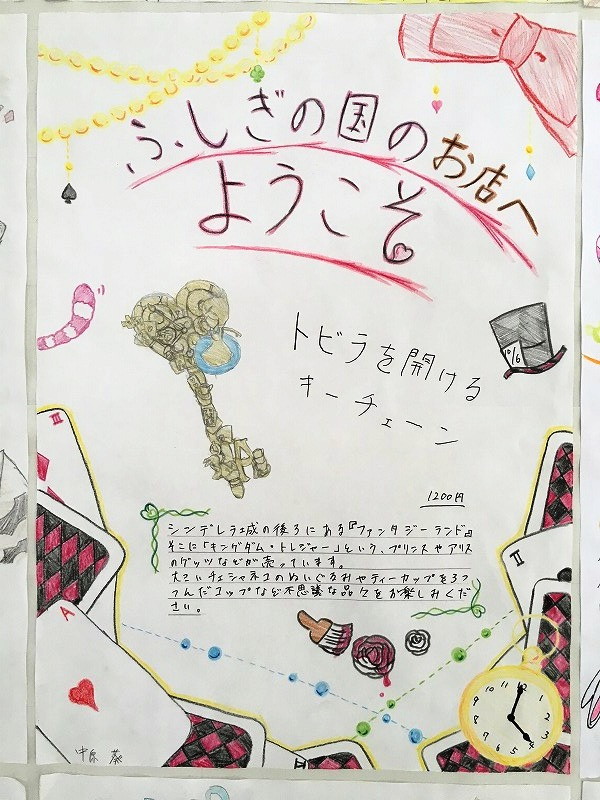 ふしぎの国のお店へ
ようこそ
トビラを開ける
キーチェーン
10/6
1200円
シンデレラ城の後ろにある『ファンタジーランド』
そこに「キングダム・トレジャー」という、プリンスやアリス
のグッツなどが売っています。
大きいチェシャネコのぬいぐるみやティーカップをろう
つんだコップなど不思議な品々をお楽しみくだ
さい。
III
II
A
12
1
2
3
4
5
6
7
8
9
10
11
中原 葵